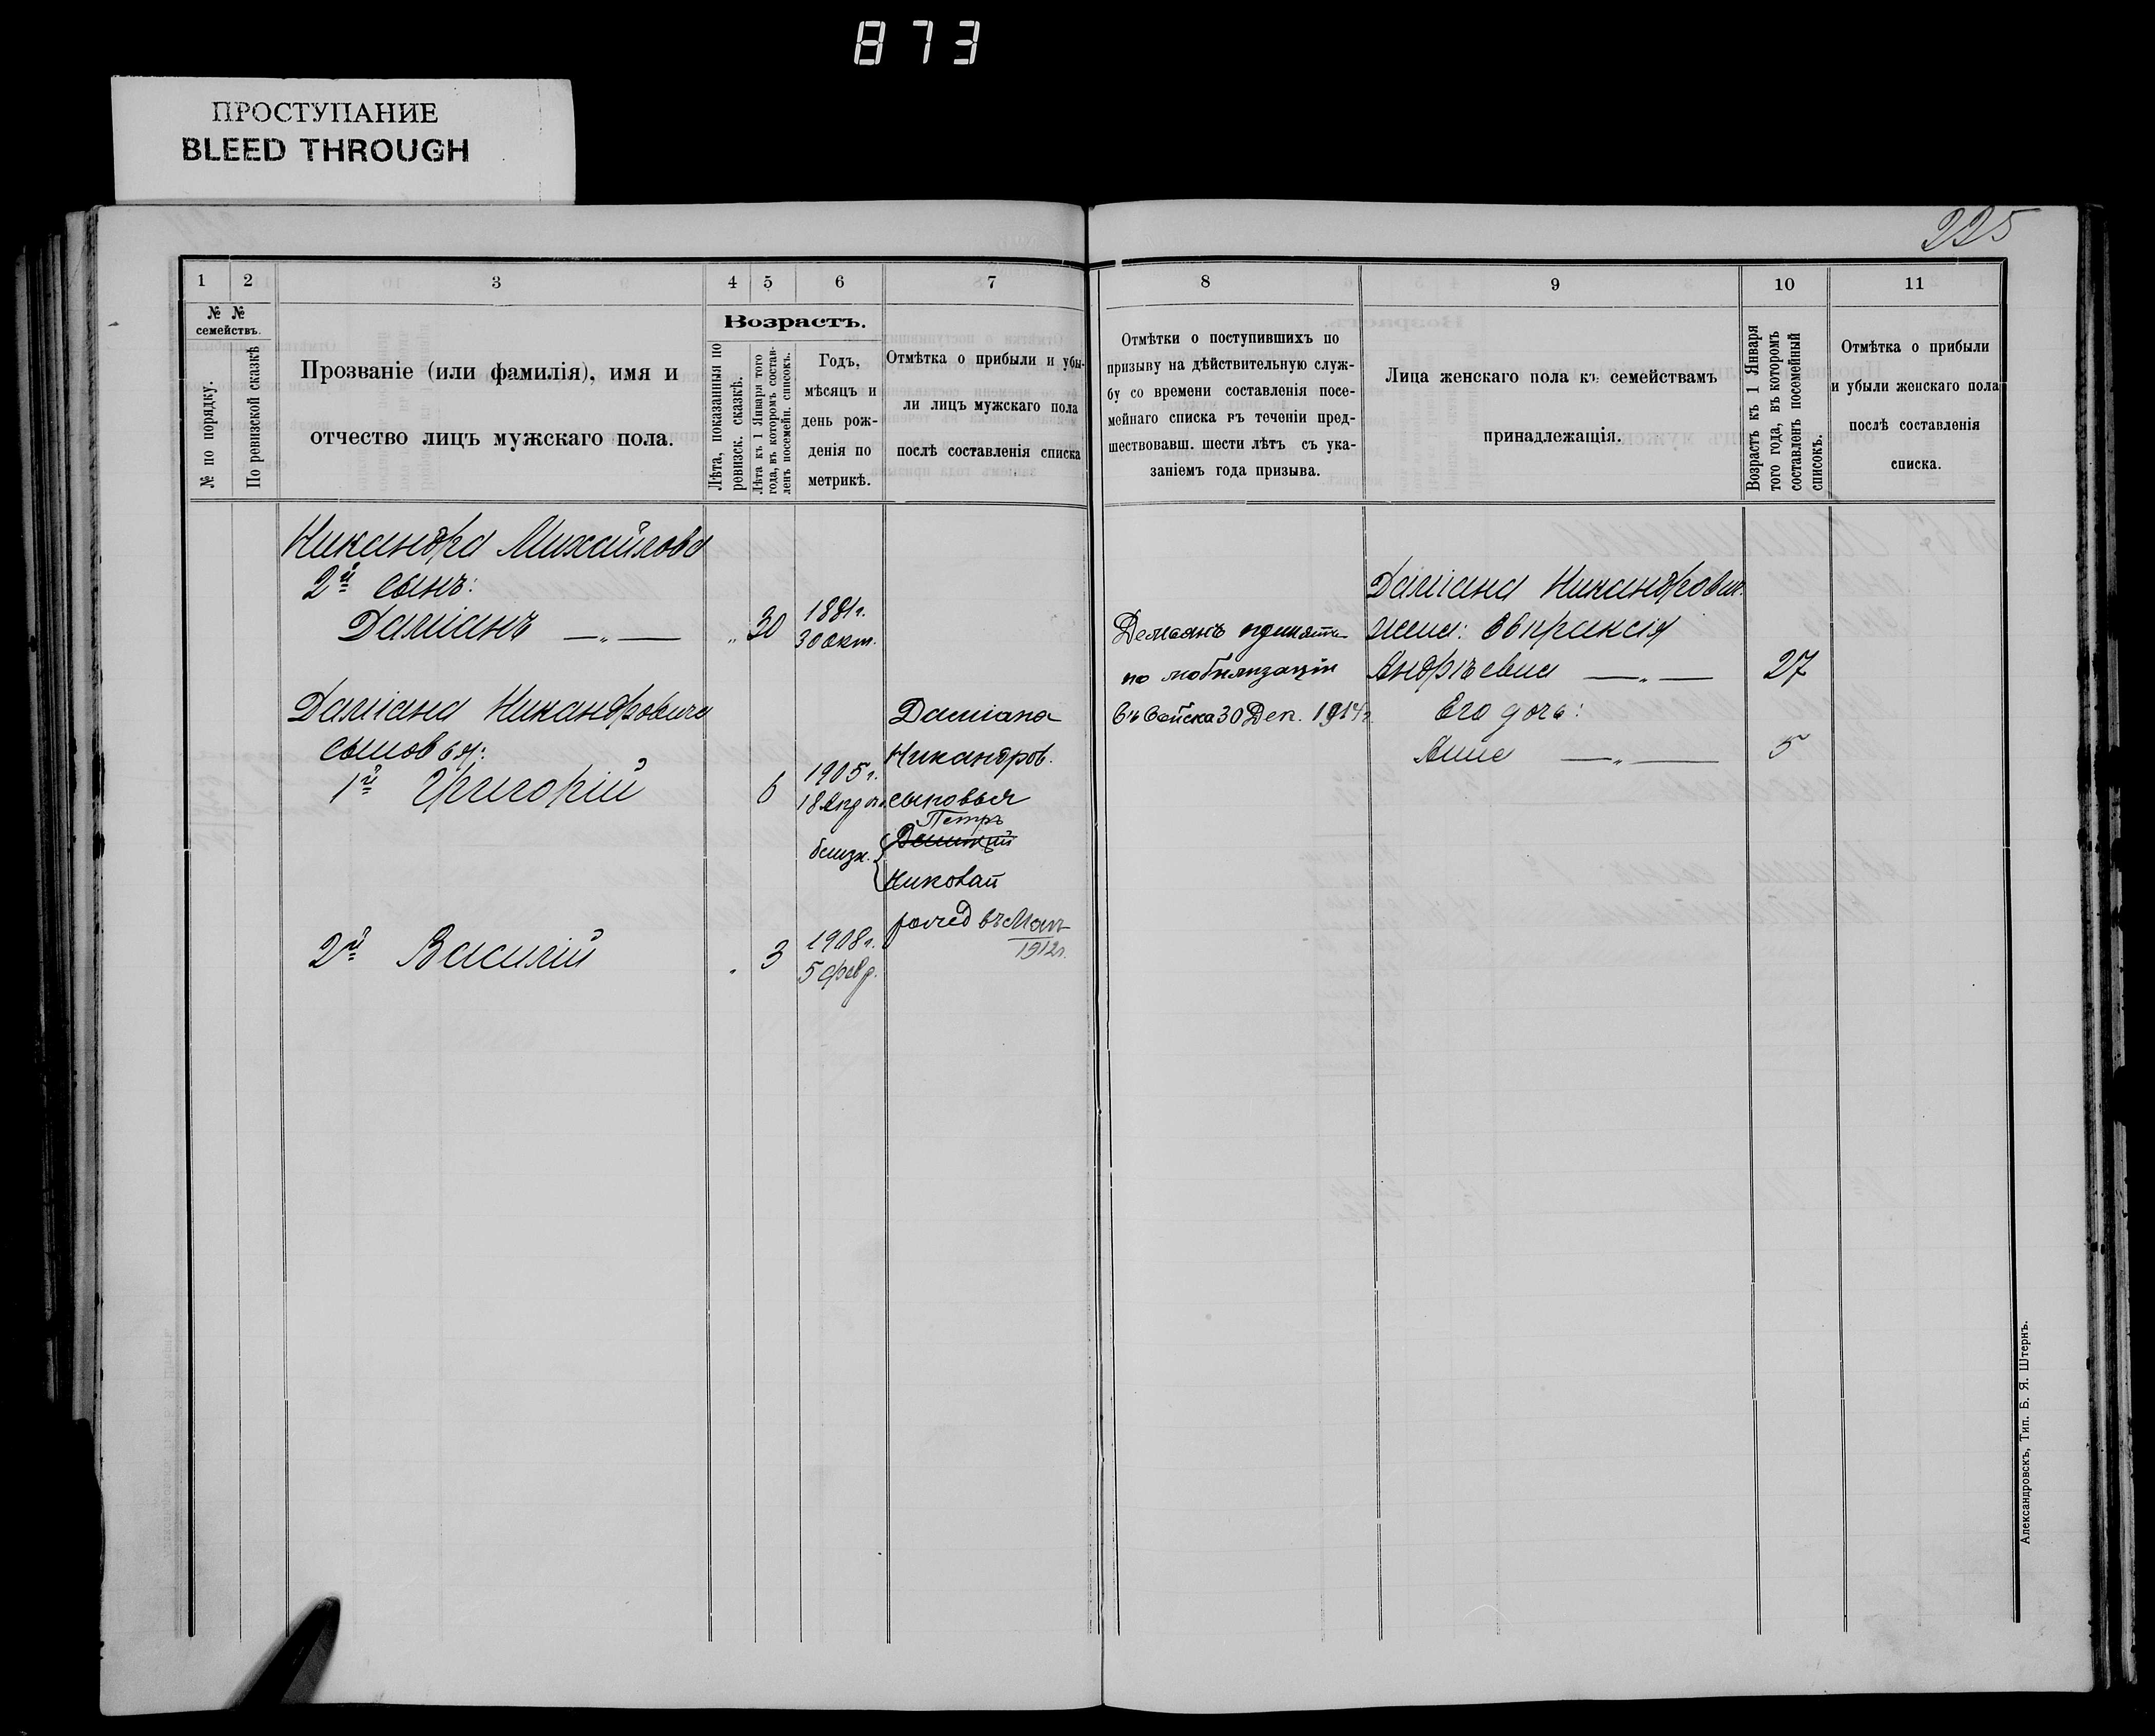 873
ПРОСТУПАНИЕ
BLEED THROUGH
225
1 2 3 4 5 6 7 8 9 10 11
№ №
семействъ.
№ по порядку.
По ревизской сказкѣ
Прозваніе (или фамилія), имя и
отчество лицъ мужскаго пола.
Возрастъ.
Лѣта, показанныя по
ревизск. сказкѣ.
Лѣта къ 1 Января того
года, въ которомъ состав-
ленъ посемейн. списокъ.
Годъ,
мѣсяцъ и
день рож-
денія по
метрикѣ.
Отмѣтка о прибыли и убы-
ли лицъ мужскаго пола
послѣ составленія списка
Отмѣтки о поступившихъ по
призыву на дѣйствительную служ-
бу со времени составленія посе-
мейнаго списка въ теченіи пред-
шествовавш. шести лѣтъ съ ука-
заніемъ года призыва.
Лица женскаго пола къ семействамъ
принадлежащія.
Возрастъ къ 1 Января
того года, въ которомъ
составленъ посемейный
списокъ.
Отмѣтка о прибыли
и убыли женскаго пола
послѣ составленія
списка.
Никандра Михайлова
2й сынъ:
Даміанъ — „ — „ 30 1881 г.
30 Окт.
Даміана Никандровича
сыновья:
1й Григорій 6 1905 г.
18
2й Василій „ 3 1908 г.
5 февр.
Даміана
Никандров.
сыновья
Петръ
близн.
Николай
1912 г.
Демьянъ принятъ
по мобилизаціи
въ войска 30 Дек. 1914 г.
Даміана Никандрович.
жена: Евпраксія
Андрѣевна — „ — 27
Его дочь:
Анна — „ — 5
Александровскъ, Тип. Б. Я. Штернъ.